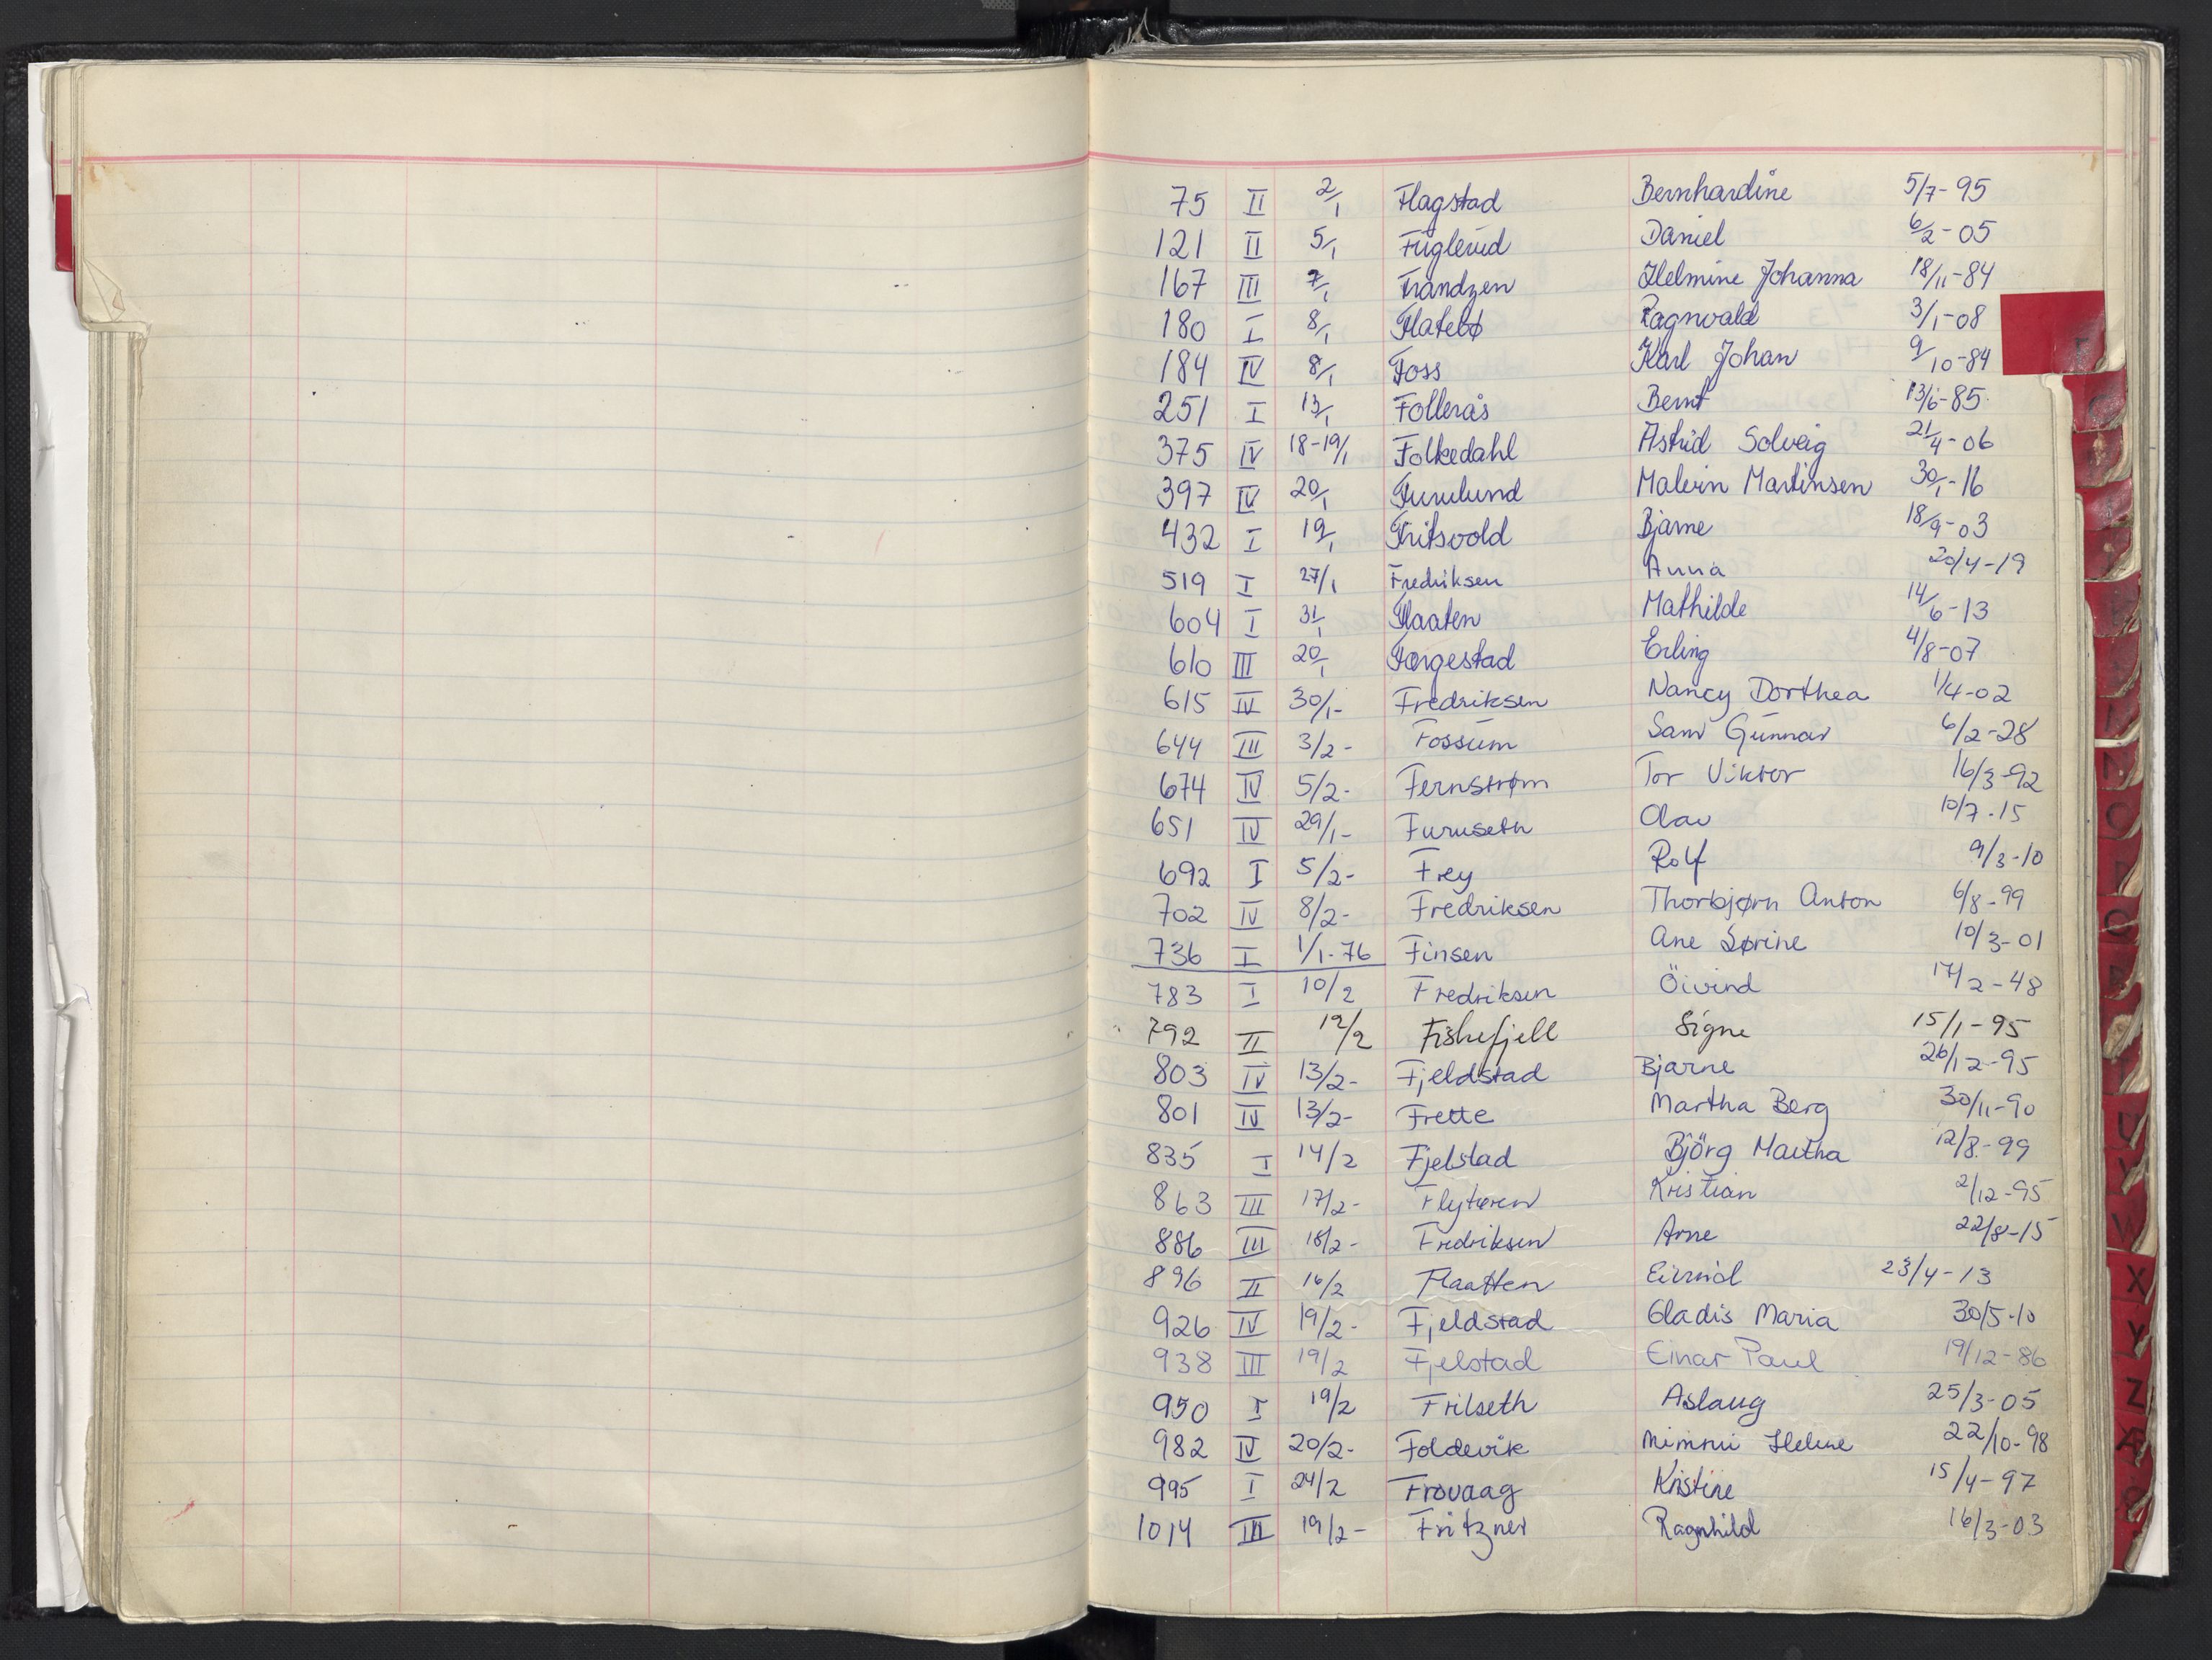 75 II 2/1 Flagstad Bernhardine 5/7-95
121 II 5/1 Fuglerud Daniel 6/2-05
167 III 7/1 Frandzen Helmine Johanna 18/11-84
180 I 8/1 Flatebø Ragnvald 3/1-08
184 IV 8/1 Foss Karl Johan 9/10-84
251 I 13/1 Follerås Bernt 13/6-85
375 IV 18-19/1 Folkedahl Astrid Solveig 21/4-06
397 IV 20/1 Furulund Malvin Martinsen 30/1-16
432 I 19/1 Fritsvold Bjarne 18/9-03
519 I 27/1 Fredriksen Anna 20/4-19
604 I 31/1 Flaaten Mathilde 14/6-13
610 III 20/1 Færgestad Erling 4/8-07
615 IV 30/1- Fredriksen Nancy Dorthea 1/4-02
644 III 3/2- Fossum Sam Gunnar 6/2-28
674 IV 5/2- Fernstrøm Tor Viktor 16/3-92
651 IV 29/1- Furuseth Olav 10/7-15
692 I 5/2- Frey Rolf 9/3-10
702 IV 8/2- Fredriksen Thorbjørn Anton 6/8-99
736 I 1/1-76 Finsen Ane Sørine 10/3-01
783 I 10/2 Fredriksen Öivind 17/2-48
792 II 12/2 Fiskefjell Signe 15/1-95
803 IV 13/2- Fjeldstad Bjarne 26/12-95
801 IV 13/2- Frette Martha Berg 30/11-90
835 I 14/2 Fjelstad Björg Martha 12/8-99
863 III 17/2- Flytøren Kristian 2/12-95
886 III 18/2- Fredriksen Arne 22/8-15
896 II 16/2 Flaatten Eivind 23/4-13
926 IV 19/2- Fjeldstad Gladis Maria 30/5-10
938 III 19/2 Fjelstad Einar Paul 19/12-86
950 I 19/2 Frilseth Aslaug 25/3-05
982 IV 20/2- Foldevik Mimmi Helene 22/10-98
995 I 24/2 Frovaag Kristine 15/4-97
1014 III 19/2- Fritzner Ragnhild 16/3-03